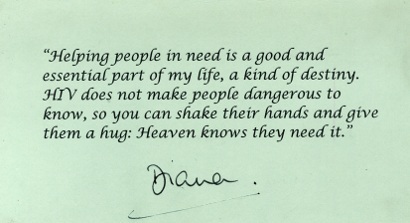 “Helping people in need is a good and
essential part of my life, a kind of destiny.
HIV does not make people dangerous to
know, so you can shake their hands and give
them a hug: Heaven knows they need it.”
Diana.